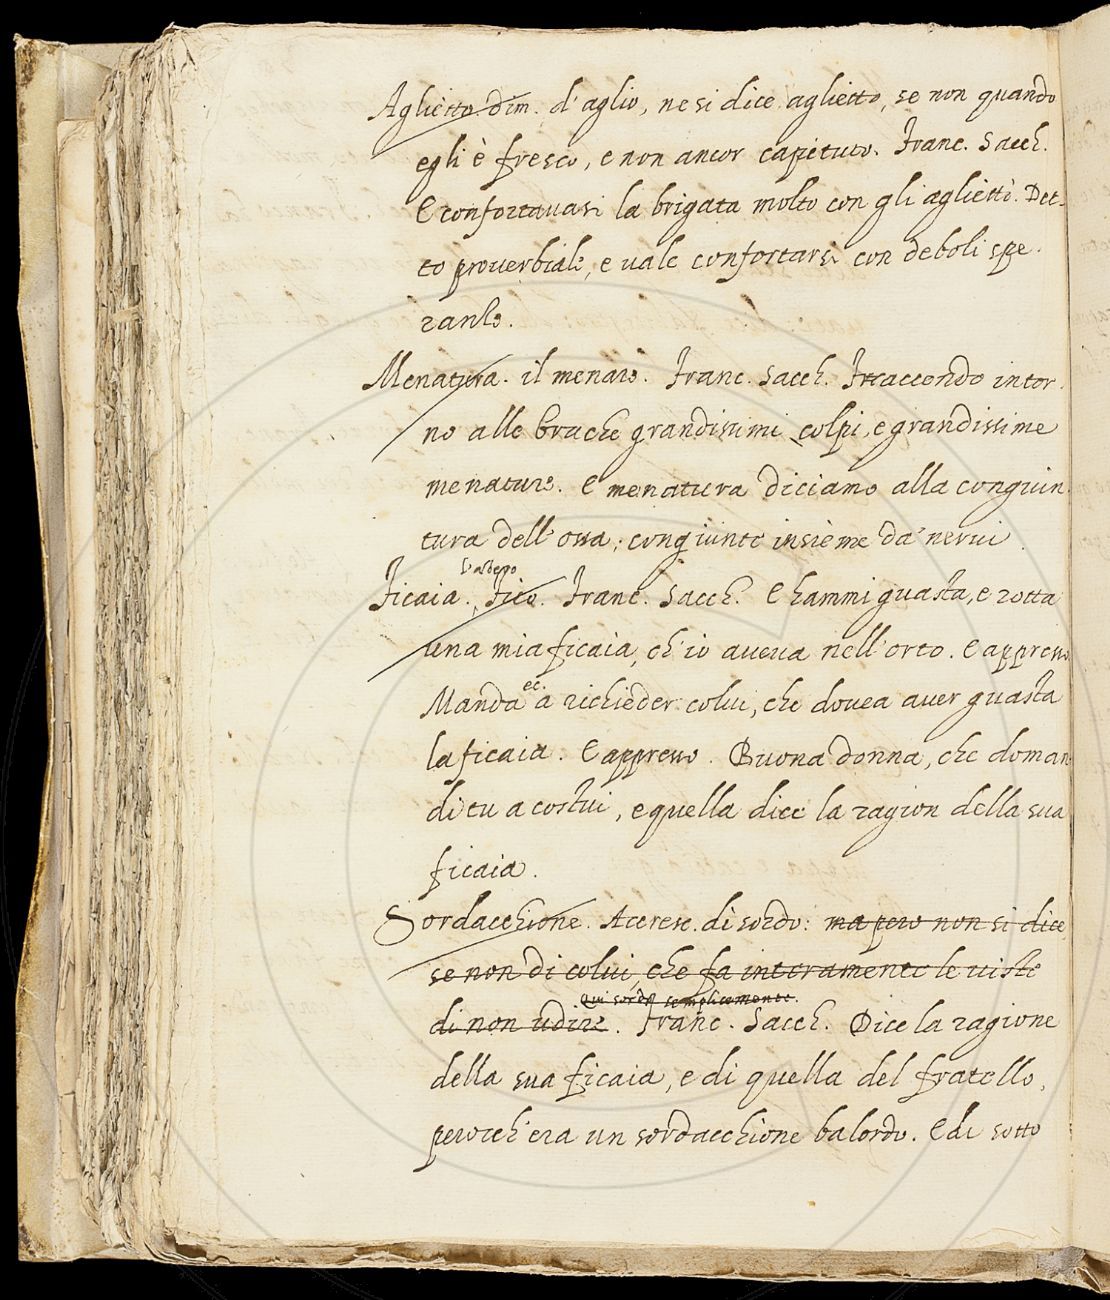 Aglietto. dim. d'aglio, ne si dice aglietto, se non quando
egli è fresco, e non ancor capituto. Franc. Sacch.
E confortavasi la brigata molto con gli aglietti. Det-
to proverbiale, e vale confortarsi con deboli spe-
ranze.
Menatura. il menare. Franc. Sacch. Traccondo intor-
no alle brache grandissimi colpi, e grandissime
menature. E menatura diciamo alla congiun-
tura dell'ossa, congiunte insieme da' nervi.
l'albero
Ficaia. Fico. Franc. Sacch. E hammi guasta, e rotta
una mia ficaia, ch'io aveva nell'orto. E appresso
Manda ec. a richieder colui, che dovea aver guasta
la ficaia. E appresso. Buona donna, che doman-
di tu a costui, e quella dice la ragion della sua
ficaia.
Sordacchione. Accresc. di sordo: ma pero non si dice,
se non di colui, che fa interamente le viste
qui sordo semplicemente.
di non udire. Franc. Sacch. Dice la ragione
della sua ficaia, e di quella del fratello,
perocch'era un sordacchione balordo. E di sotto